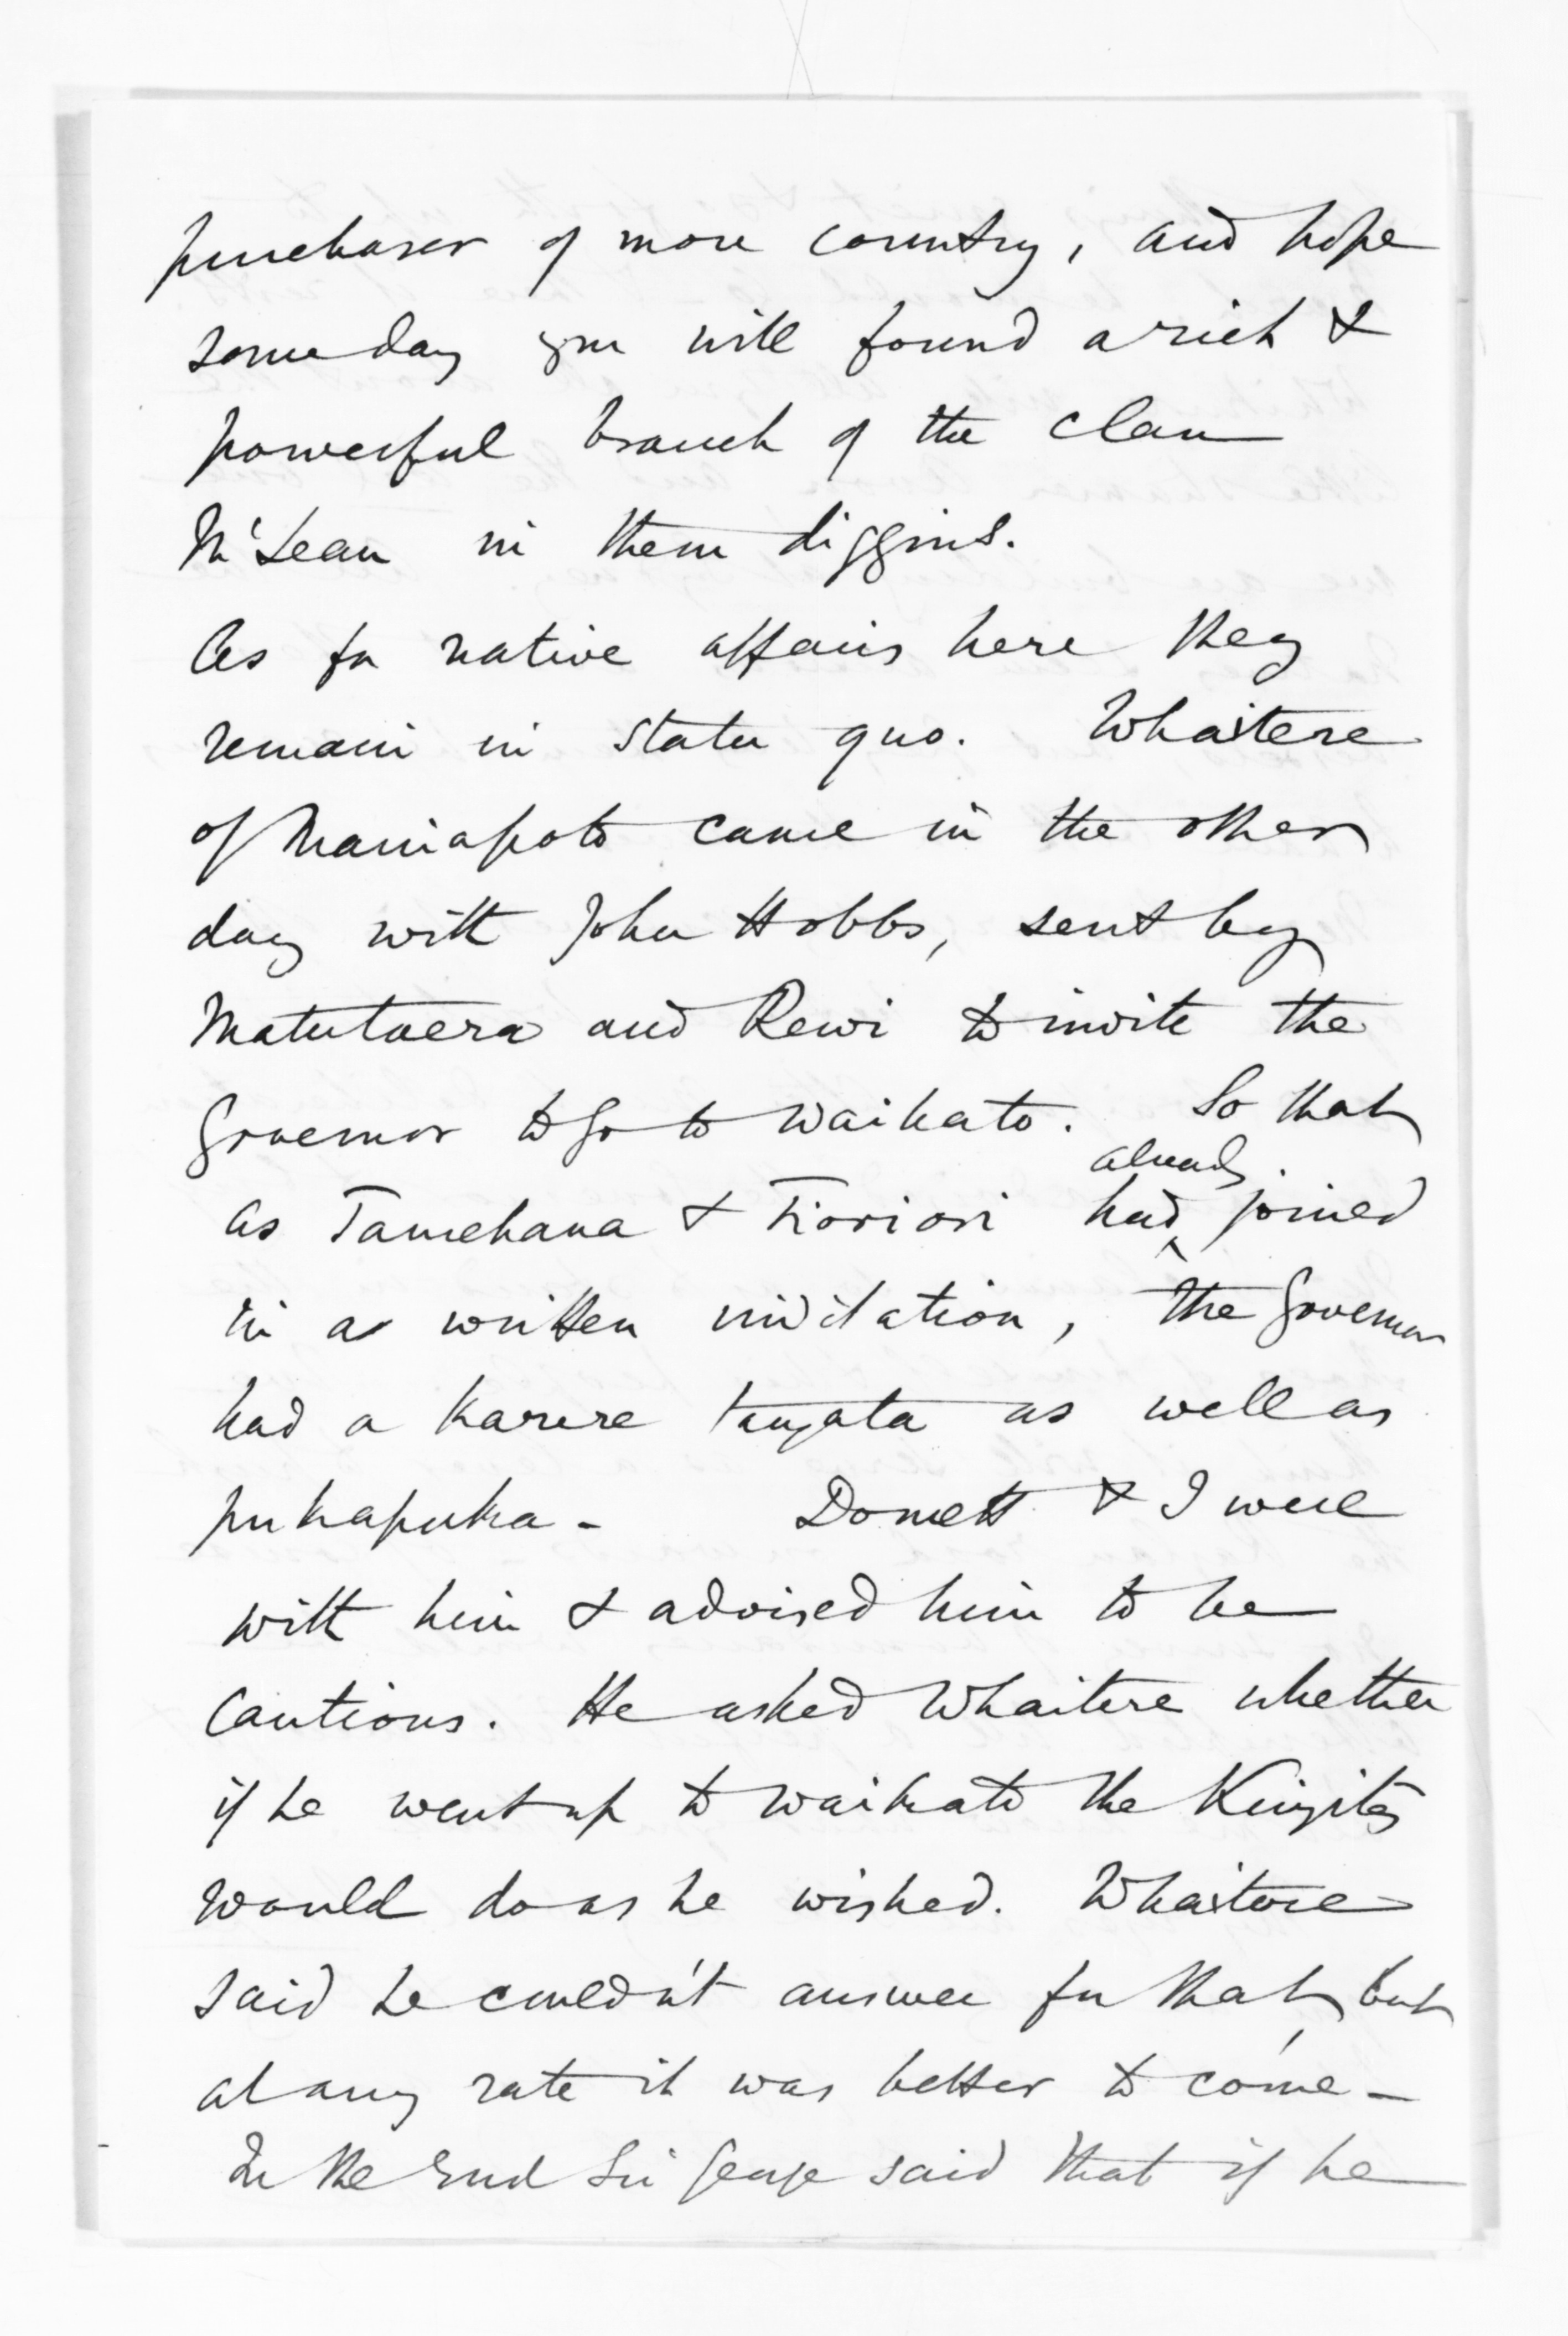 purchaser of more country, and hope
some day you will found a rich &
powerful branch of the clan
McLean in them diggins.
As for native affairs here they
remain in statu quo. Whaitere
of Maniapoto came in the other
day with John Hobbs, sent by
Matutaera and Rewi to invite the
Governor to go to Waikato. So that
already
as Tamehana & Tioriori had ‸ joined
in a written invitation, the Governor
had a karere tangata as well as
pukapuka - Domett & I were
with him & advised him to be
cautious. He asked Whaitere whether
if he went up to Waikato the Kingites
would do as he wished. Whaitere
said he couldn't answer for that, but
at any rate it was better to come -
In the end Sir George said that if he